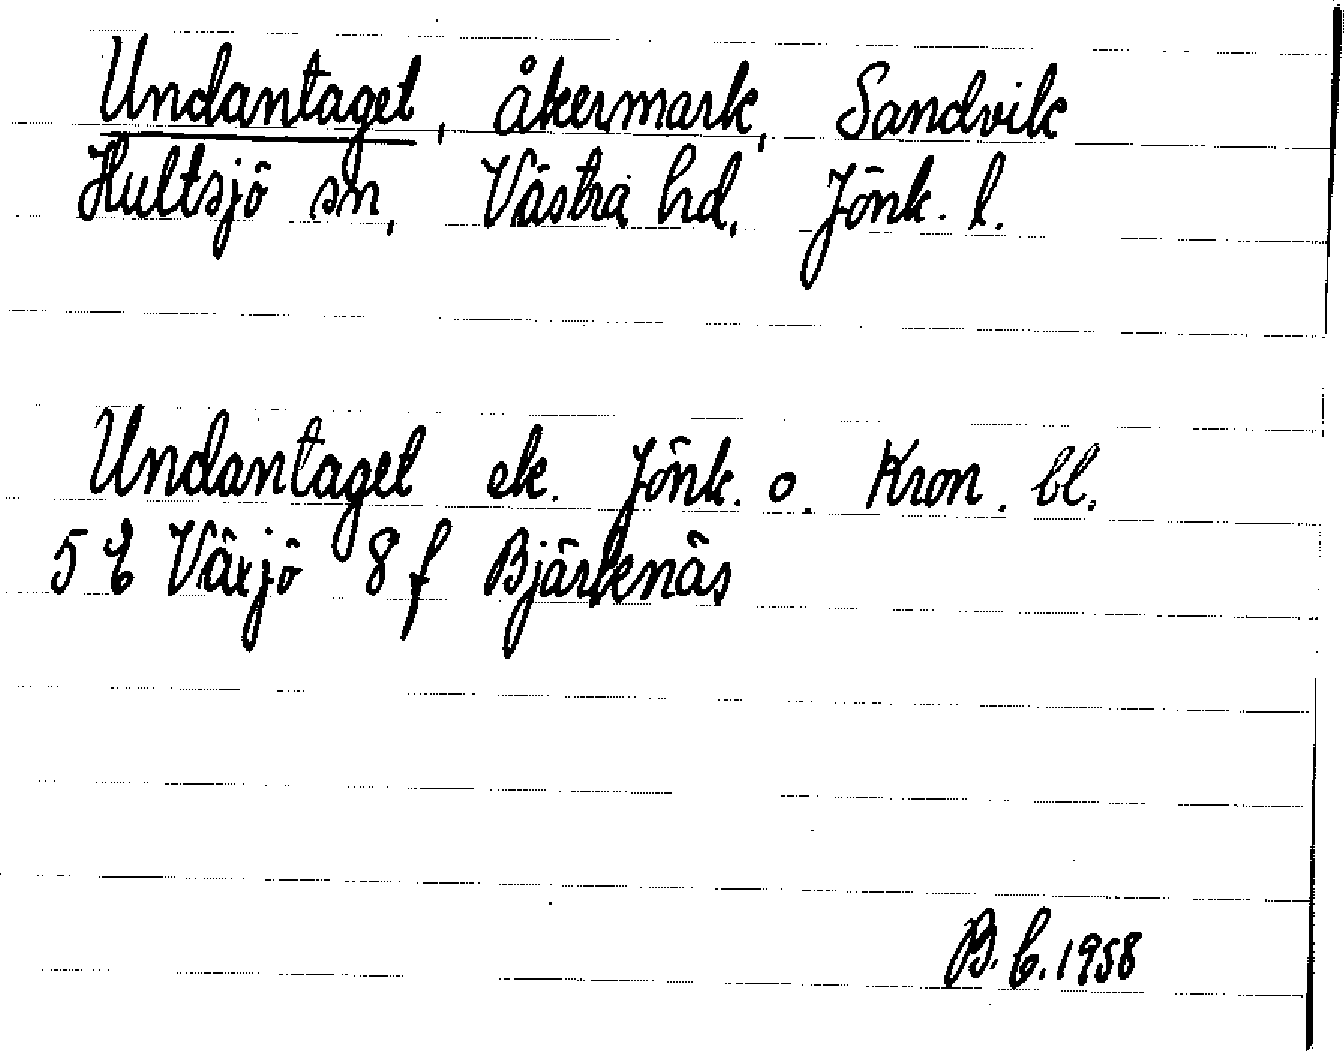 Undantaget, åkermark, Sandvik
Hultsjö sn, Västra hd, Jönk. l.
Undantaget ek. Jönk. o. Kron. bl.
5 E Växjö 8 f Bjärkenäs
B. C. 1958